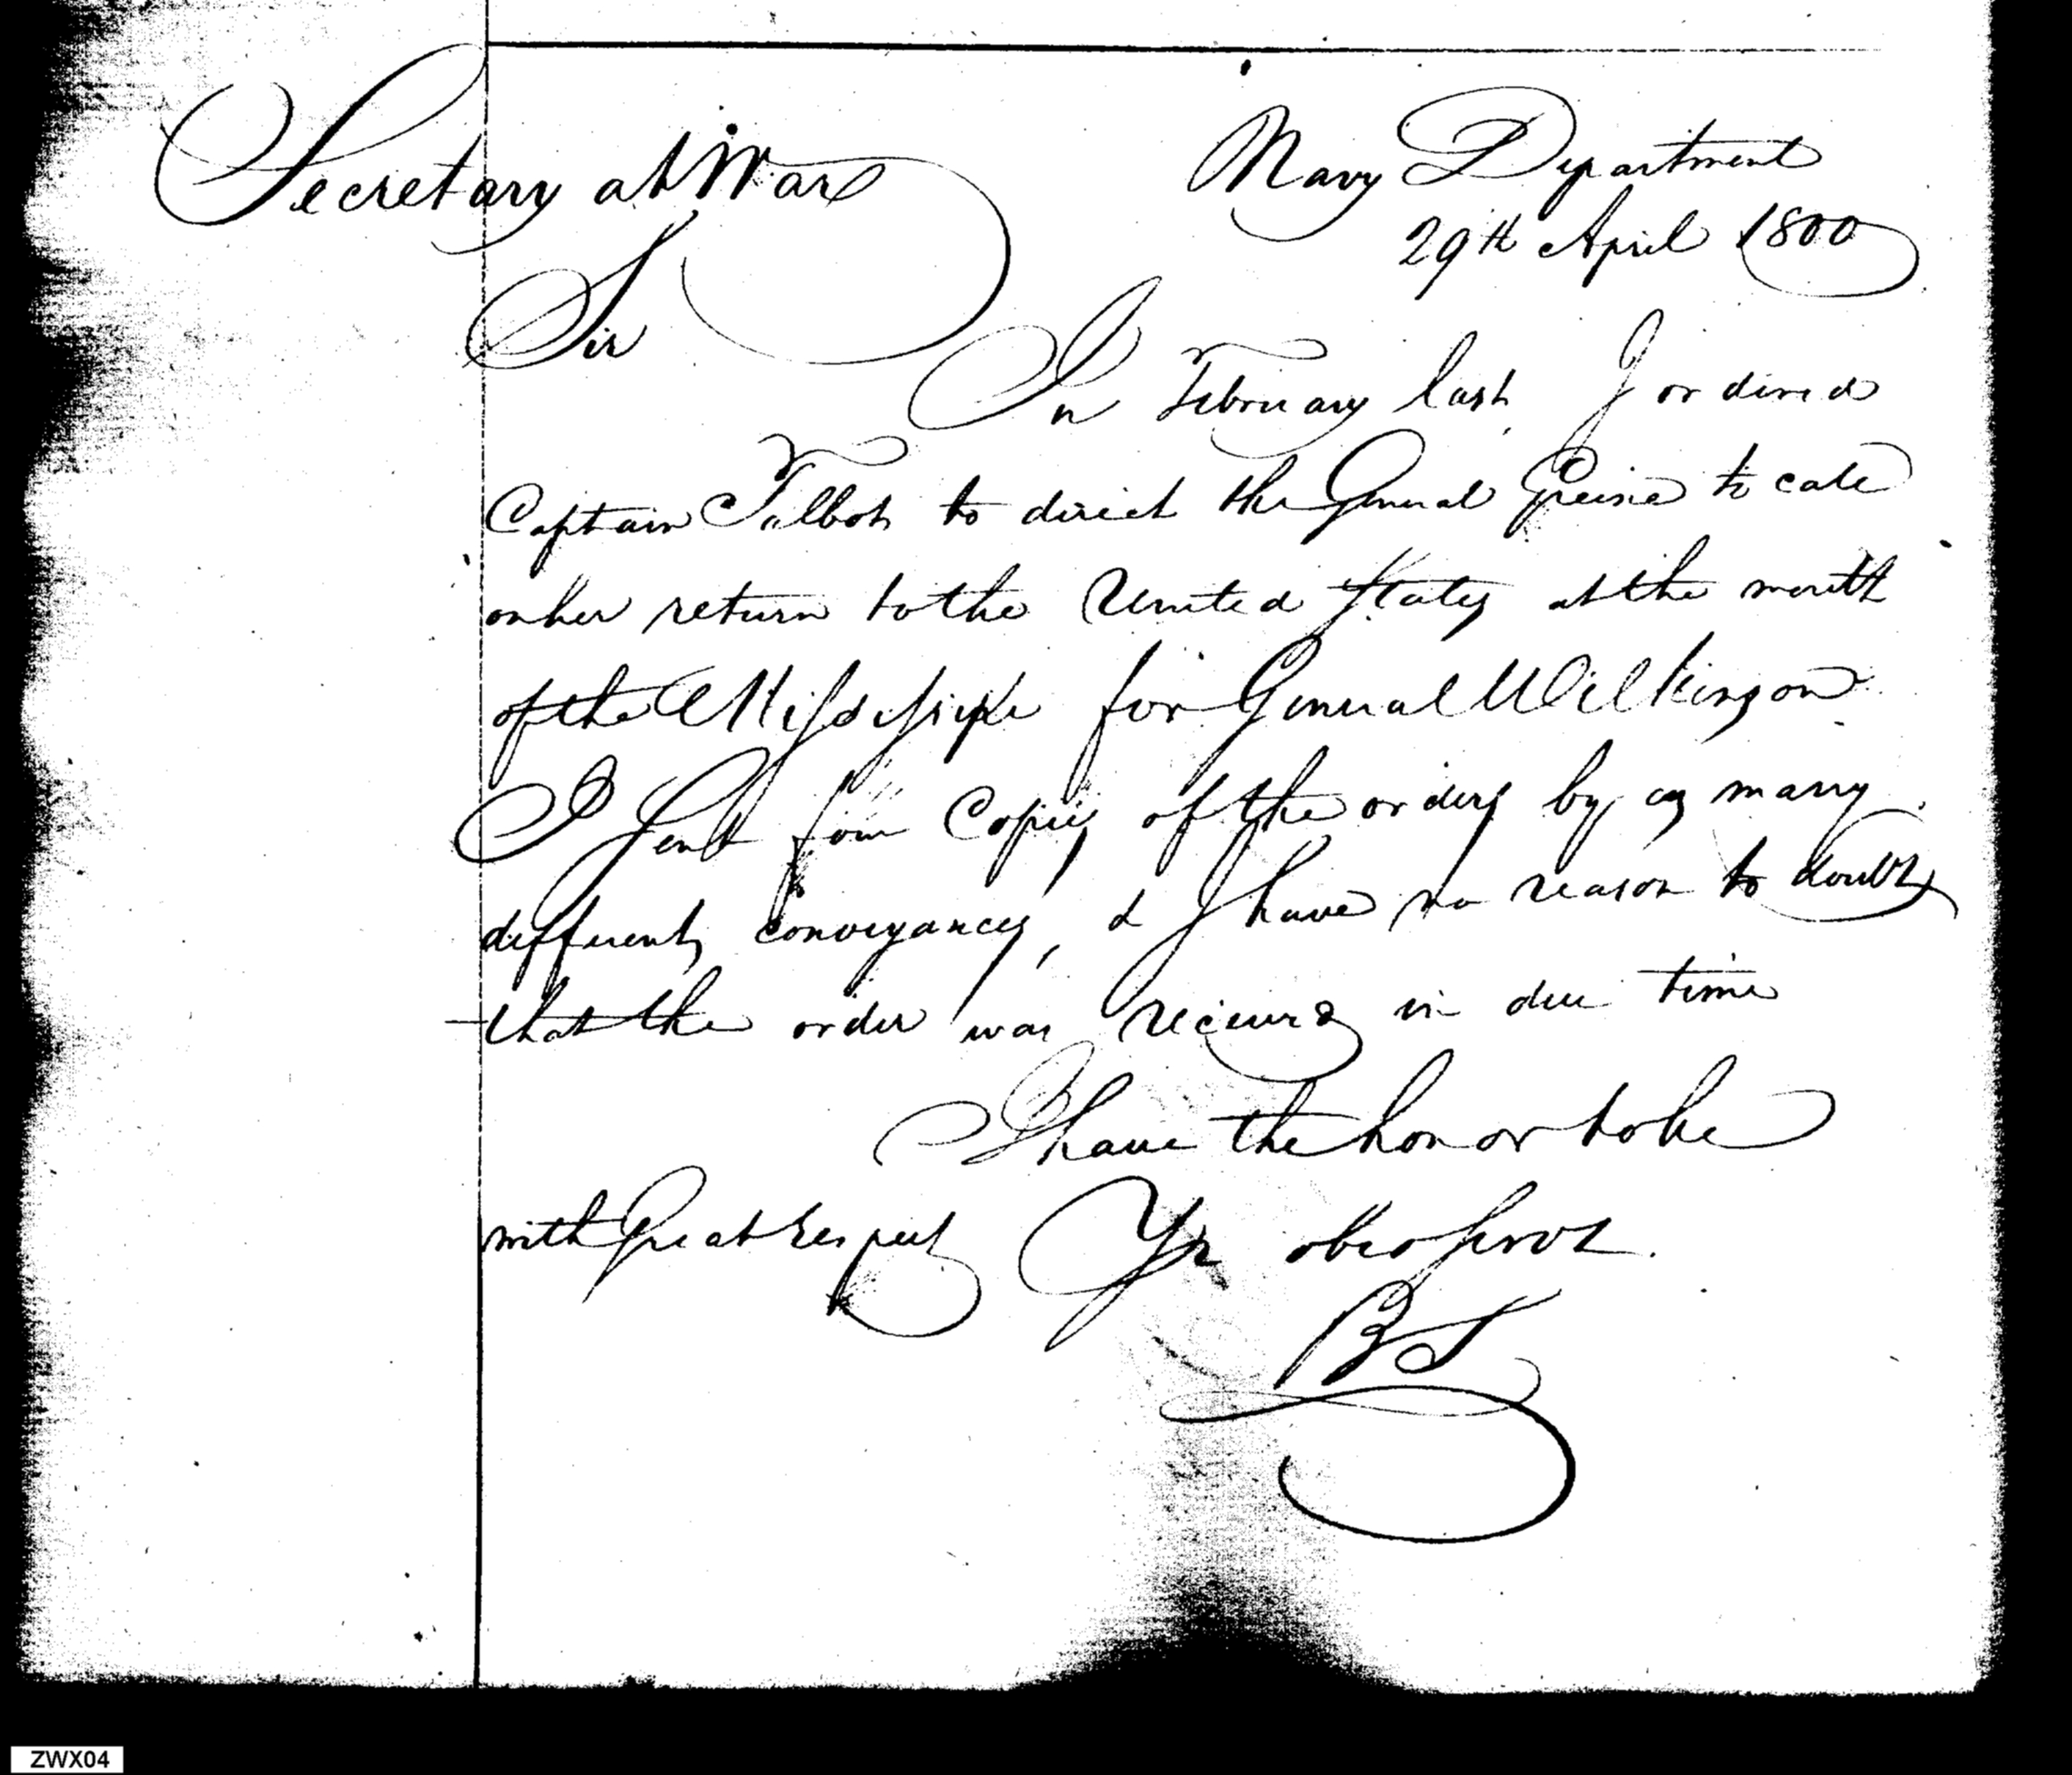 Secretary at War
Navy Department
29th April 1800
Sir
In February last, I ordered
Captain Talbot to direct the General Greene to call
on her return to the United States at the mouth
of the Missisippi for General Wilkinson
I sent four Copies of the orders by as many
different conveyances, & I have no reason to doubt
that the order was received in due time
I have the honor to be
with Great respect Yr obed servt.
BS
ZWX04